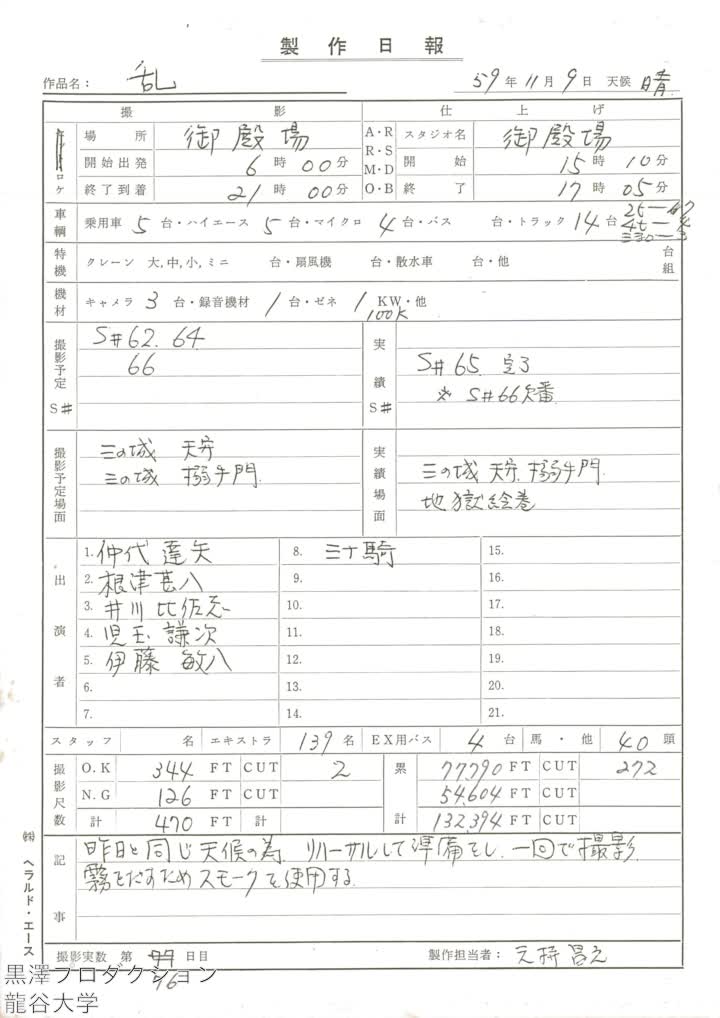 製作日報
作品名： 乱 59年11月9日 天候 晴
撮影 仕上げ
ロケ 場所 御殿場 A・R R・S M・D O・B スタジオ名 御殿場
開始出発 6時00分 開始 15時10分
終了到着 21時00分 終了 17時05分
車輌 乗用車 5 台・ハイエース 5 台・マイクロ 4 台・バス 台・トラック 14 台
特機 クレーン 大,中,小,ミニ 台・扇風機 台・散水車 台・他 台組
機材 キャメラ 3 台・録音機材 1 台・ゼネ 1 KW・他
100K
撮影予定 S# S#62. 64 66
実績 S# S#65. 完了
※ S#66欠番
撮影予定場面 三の城 天守
三の城 搦手門
実績場面 三の城 天守. 搦手門.
地獄絵巻
出演者
1. 仲代達矢 8. 三十騎 15.
2. 根津甚八 9. 16.
3. 井川比佐志 10. 17.
4. 児玉謙次 11. 18.
5. 伊藤敏八 12. 19.
6. 13. 20.
7. 14. 21.
スタッフ 名 エキストラ 139名 EX用バス 4台 馬・他 40頭
撮影尺数 O.K 344 FT CUT 2 累計 77.790 FT CUT 272
N.G 126 FT CUT 54.604 FT CUT
計 470 FT 計 132.394 FT CUT
記事 昨日と同じ天候の為. リハーサルして準備をし. 一回で撮影.
霧をだすためスモークを使用する.
撮影実数 第 76 日目 製作担当者： 元持昌之
㈱ ヘラルド・エース
黒澤プロダクション
龍谷大学